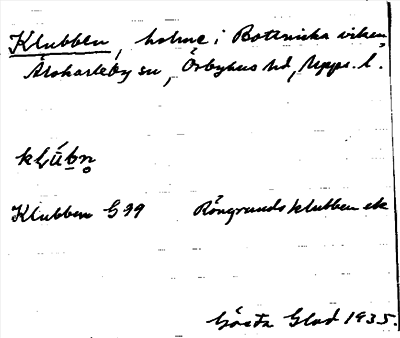 Klubben, holme i Bottniska viken,
Älvkarleby sn, Örbyhus hd, Upps. l.
klúbn̥
Klubben G 39 Röngrundsklubben ek
Gösta Glad 1935.